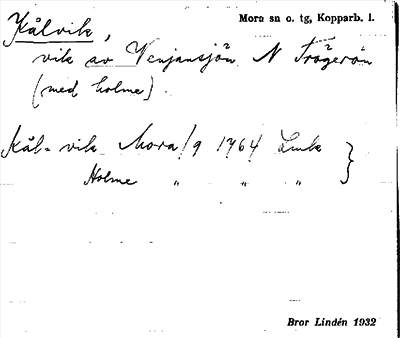 Mora sn o. tg, Kopparb. l.
Kålvik,
vik av Venjansjön N Trågerön
(med holme).
Kål-vik Mora/9 1764 Link }
Holme " " "
Bror Lindén 1932